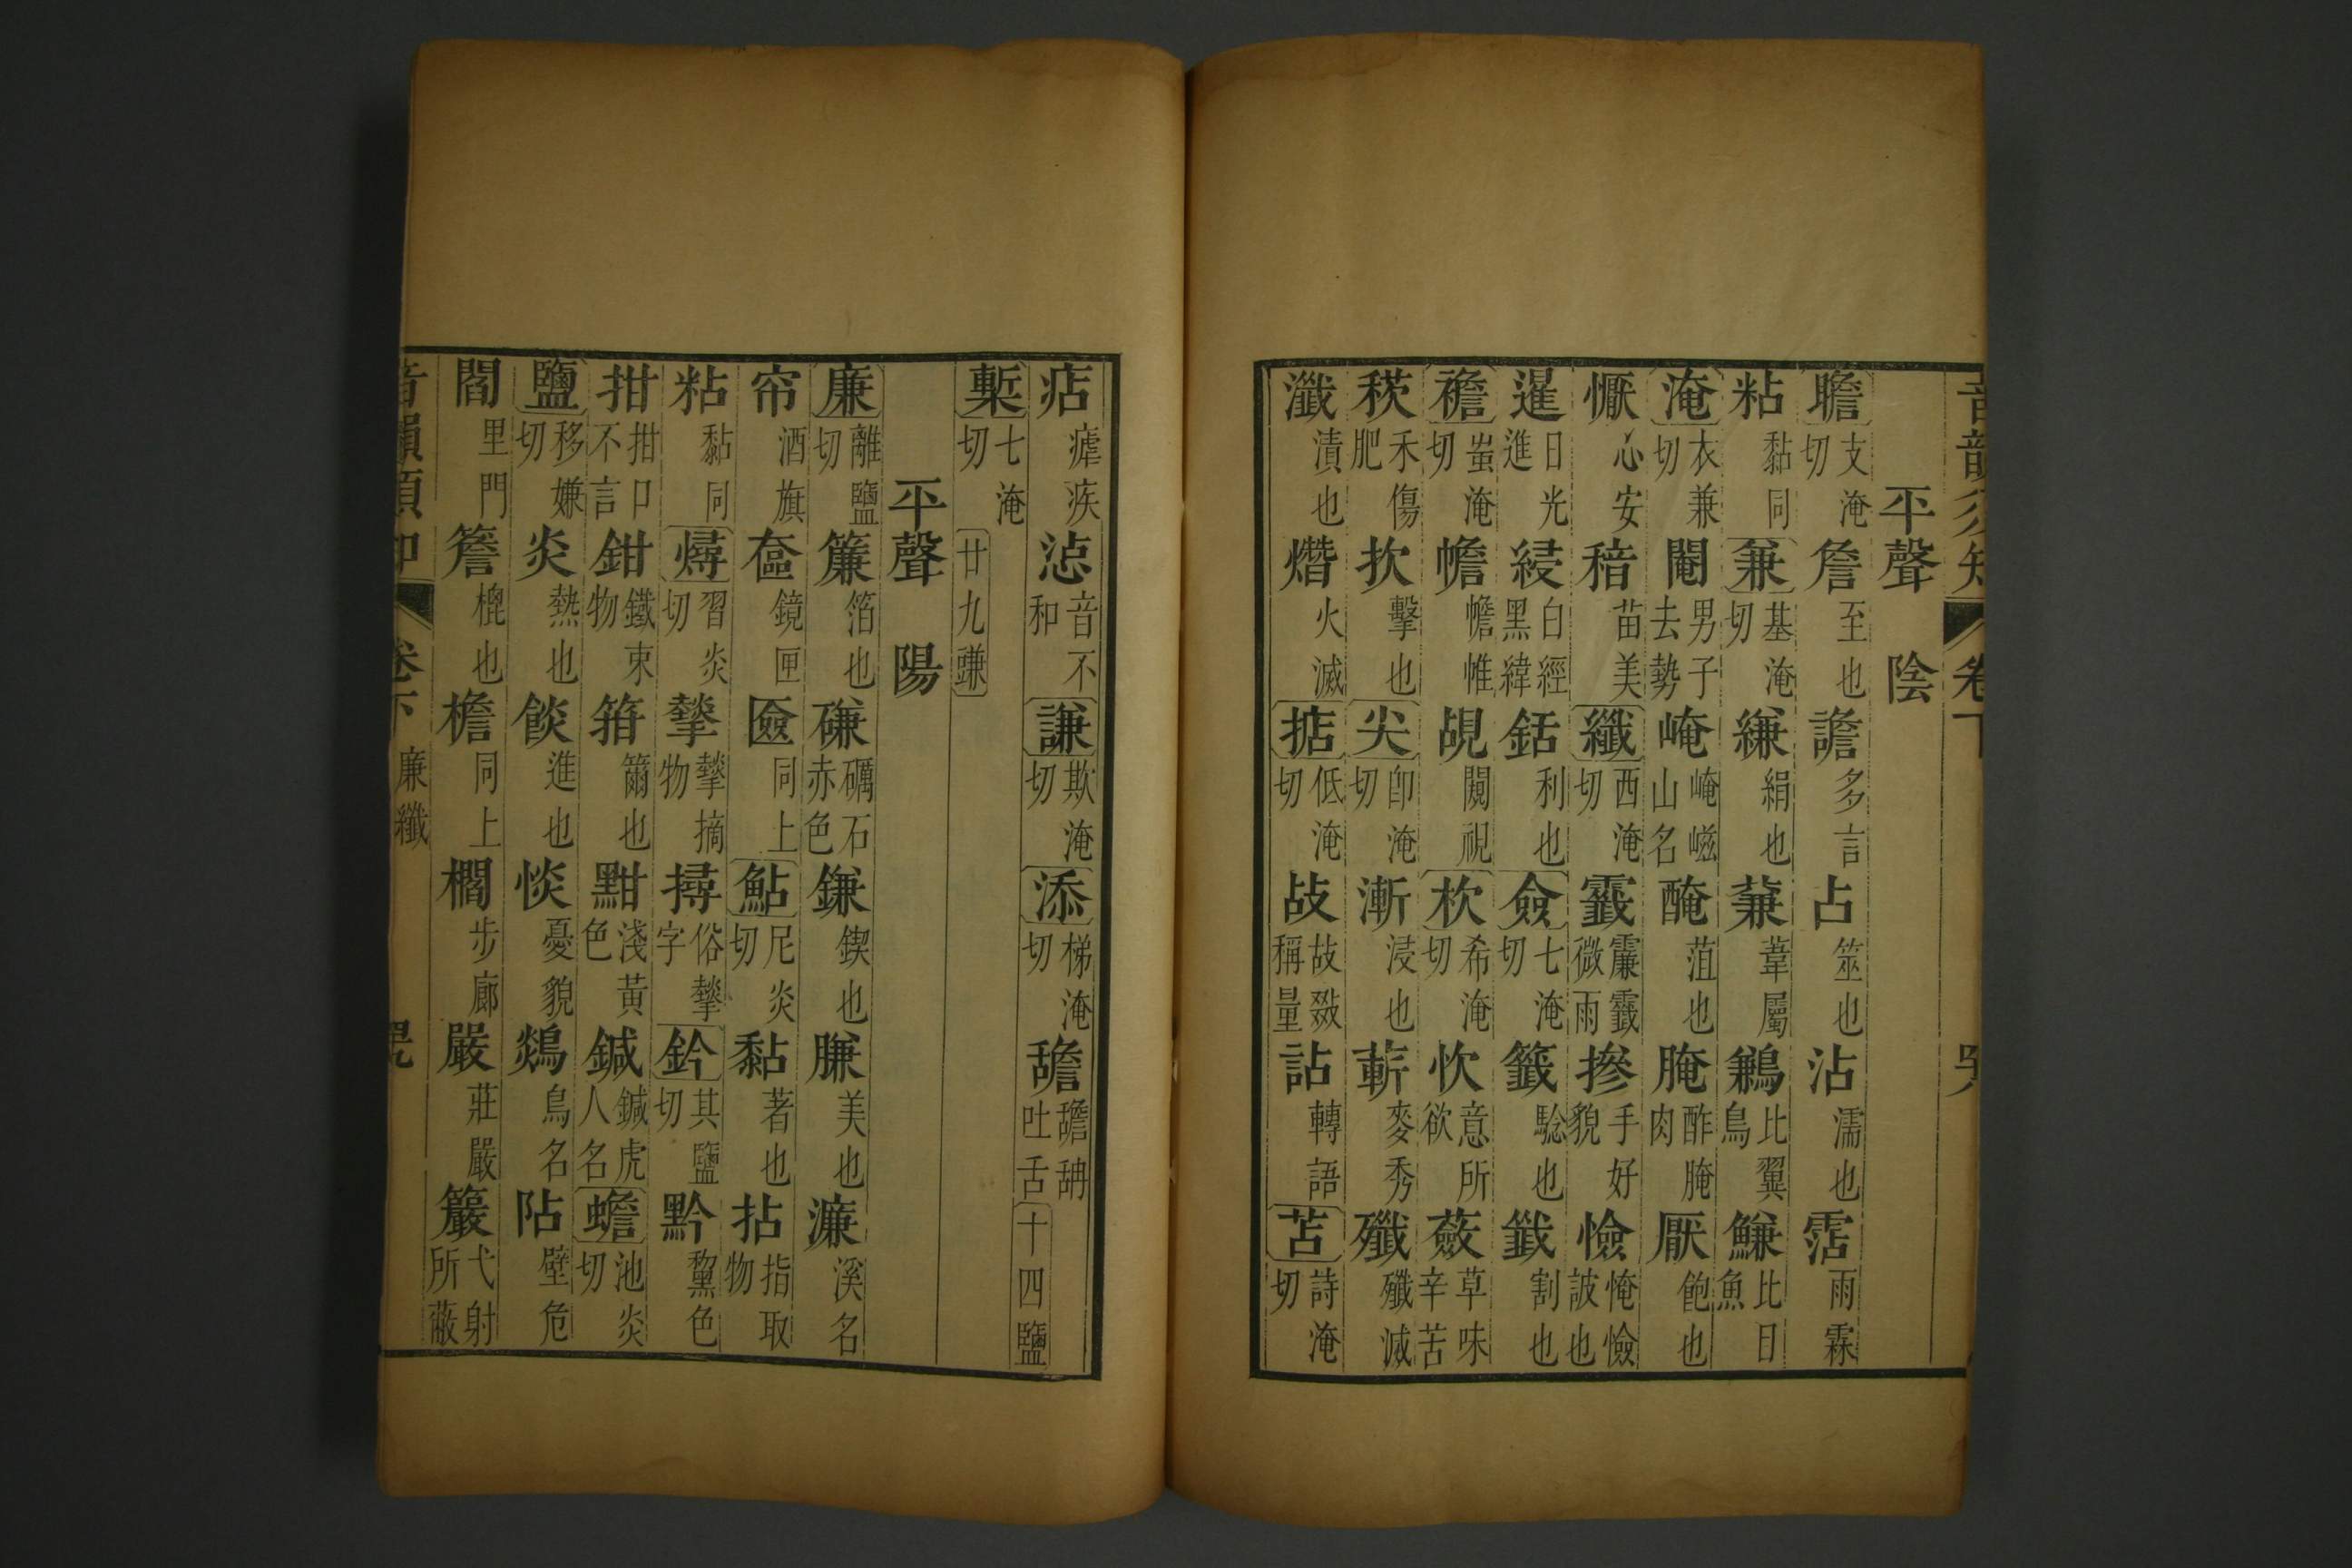 音韻須知 卷下
平聲 陰
瞻支淹切 詹至也 譫多言 占筮也 沾濡也 霑雨霖
粘黏同 兼基淹切 縑絹也 蒹葦屬 鶼比翼鳥 鰜比目魚
淹衣兼切 閹男子去勢 崦崦嵫山名 醃菹也 腌酢腌肉 厭飽也
懨心安 稖苗美 纖西淹切 霺霢微雨 摻手好貌 憸憸詖也
暹日光進 綅白經黑緯 銛利也 僉七淹切 籤騐也 籖割也
襜蚩淹切 幨幨帷 覘闚視 杴希淹切 忺意所欲 薟草味辛苦
䅬禾傷肥 扻擊也 尖卽淹切 漸浸也 蔪麥秀 殲殲滅
瀸漬也 熸火滅 掂低淹切 敁敁敠稱量 詀轉語 苫詩淹切
痁瘧疾 惉音不和 謙欺淹切 添梯淹切 䑙䑙䑚吐舌 十四鹽
槧七淹切 廿九豏
平聲 陽
廉離鹽切 簾箔也 磏礪石赤色 鎌鍥也 膁美也 濂溪名
帘酒旗 奩鏡匣 匳同上 鮎尼炎切 黏著也 拈指取物
粘黏同 燖習炎切 撏撏摘物 撏俗撏字 鈐其鹽切 黔黧色
拑拑口不言 鉗鐵束物 箝籋也 黚淺黃色 鍼鍼虎人名 蟾池炎切
鹽移嫌切 炎熱也 餤進也 惔憂貌 鴆鳥名 阽壁危
閻里門 簷梍也 檐同上 櫩步廊 嚴莊嚴 籯弋射所蔽
卷下 廉纖